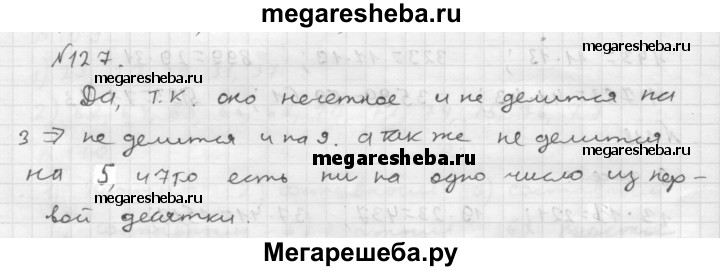 megaresheba.ru
№127.
megaresheba.ru
Да, т.к. оно нечетное и не делится на
megaresheba.ru
3 => не делится и на 9. а так же не делится
megaresheba.ru
на 5, и 7 то есть ни на одно число из пер-
megaresheba.ru
вой десятки.
Мегарешеба.ру